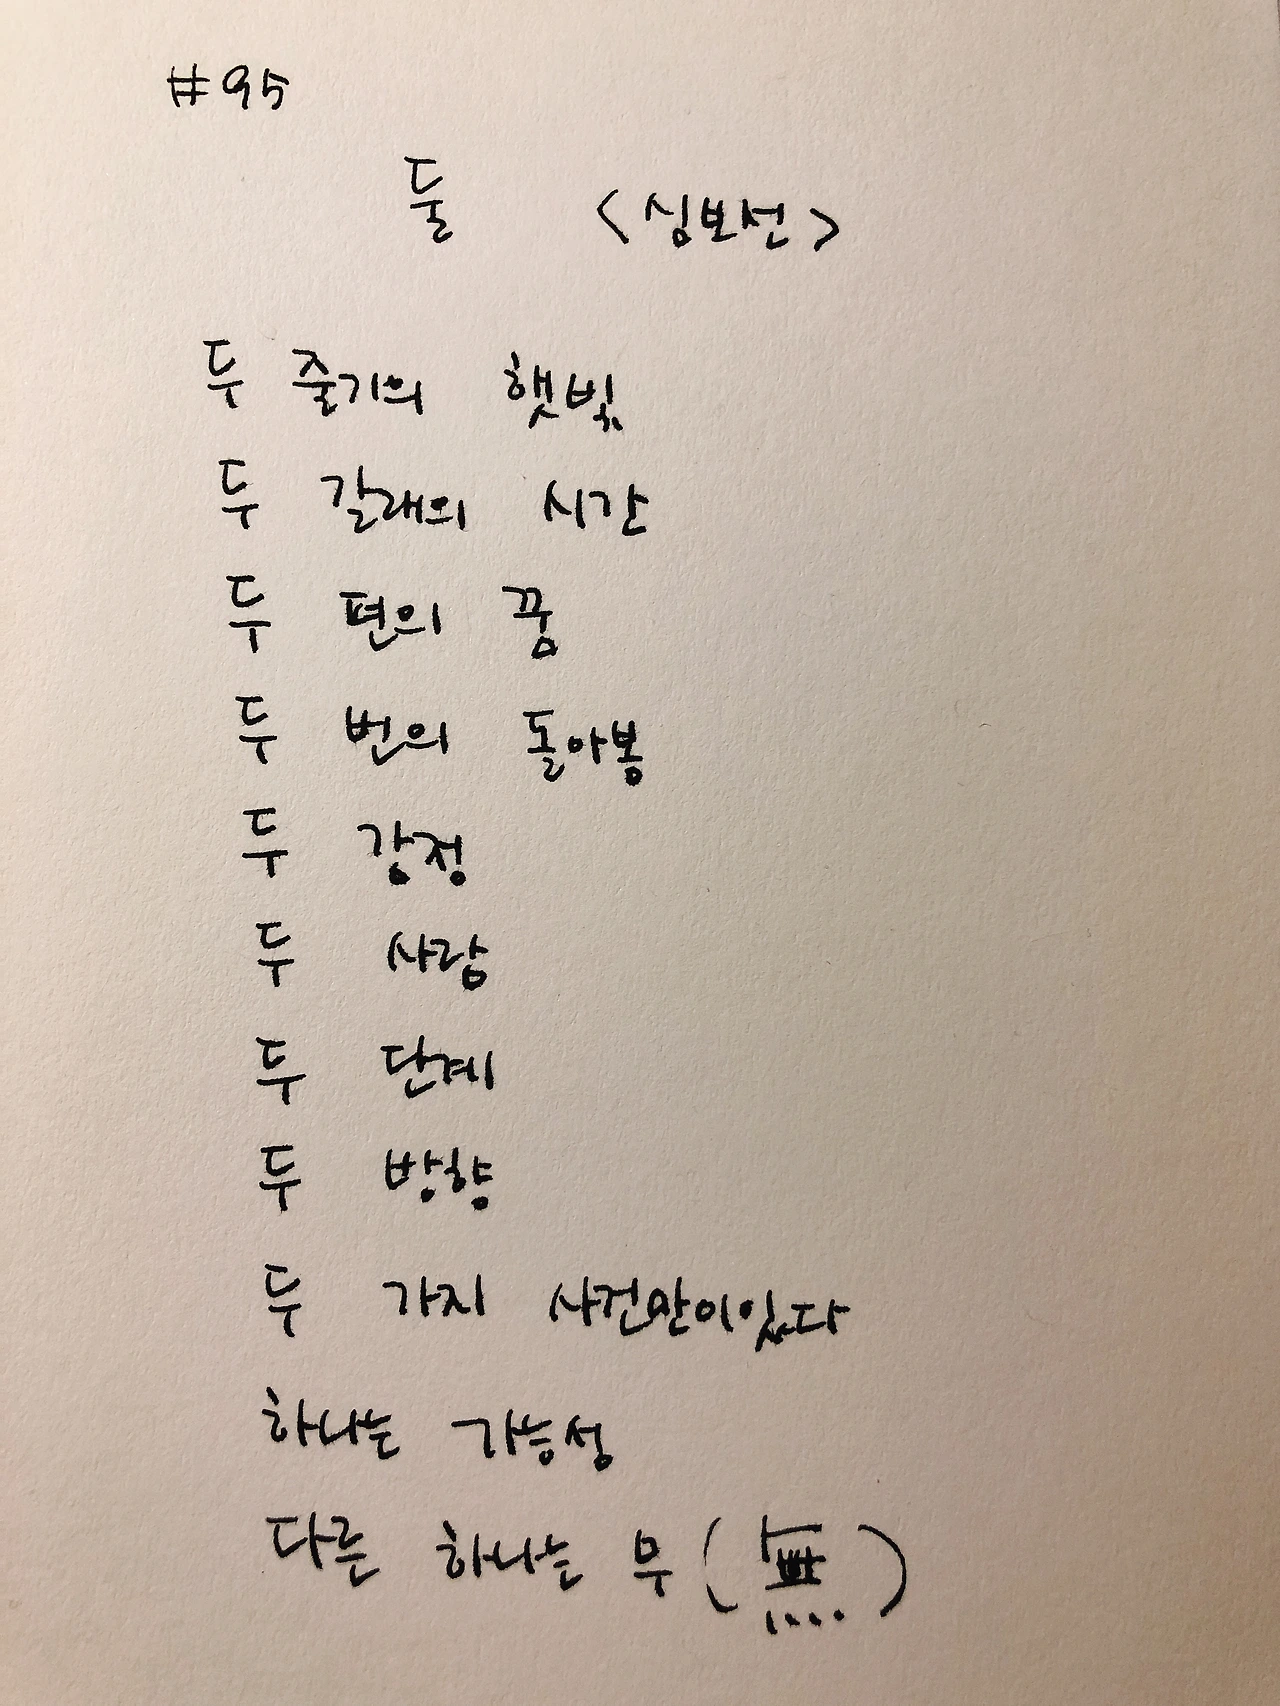 #95
둘 <심보선>
두 줄기의 햇빛
두 갈래의 시간
두 편의 꿈
두 번의 돌아봄
두 감정
두 사람
두 단계
두 방향
두 가지 사건만이있다
하나는 가능성
다른 하나는 무(無)